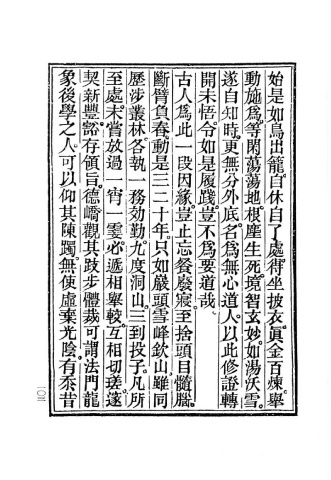 始是如鳥出籠。自休自了處。得坐披衣。眞金百煉。舉
動施爲。等閑蕩蕩地。根塵生死。境智玄妙。如湯沃雪。
遂自知時。更無分外底。名爲無心道人。以此修證。轉
開未悟。今如是履踐。豈不爲要道哉。
古人爲此一段因緣。豈止忘餐廢寢。至捨頭目髓腦。
斷臂負舂。動是三二十年。只如巖頭雪峰欽山。雖同
歷涉叢林。各執一務。効勤。九度洞山。三到投子。凡所
至處。未嘗放過一宵一霎。必遞相舉較。互相切瑳。遂
契新豐。豁存領旨。德嶠觀其跂步體裁。可謂法門龍
象。後學之人。可以仰其陳躅。無使虛棄光陰。有忝昔
1011